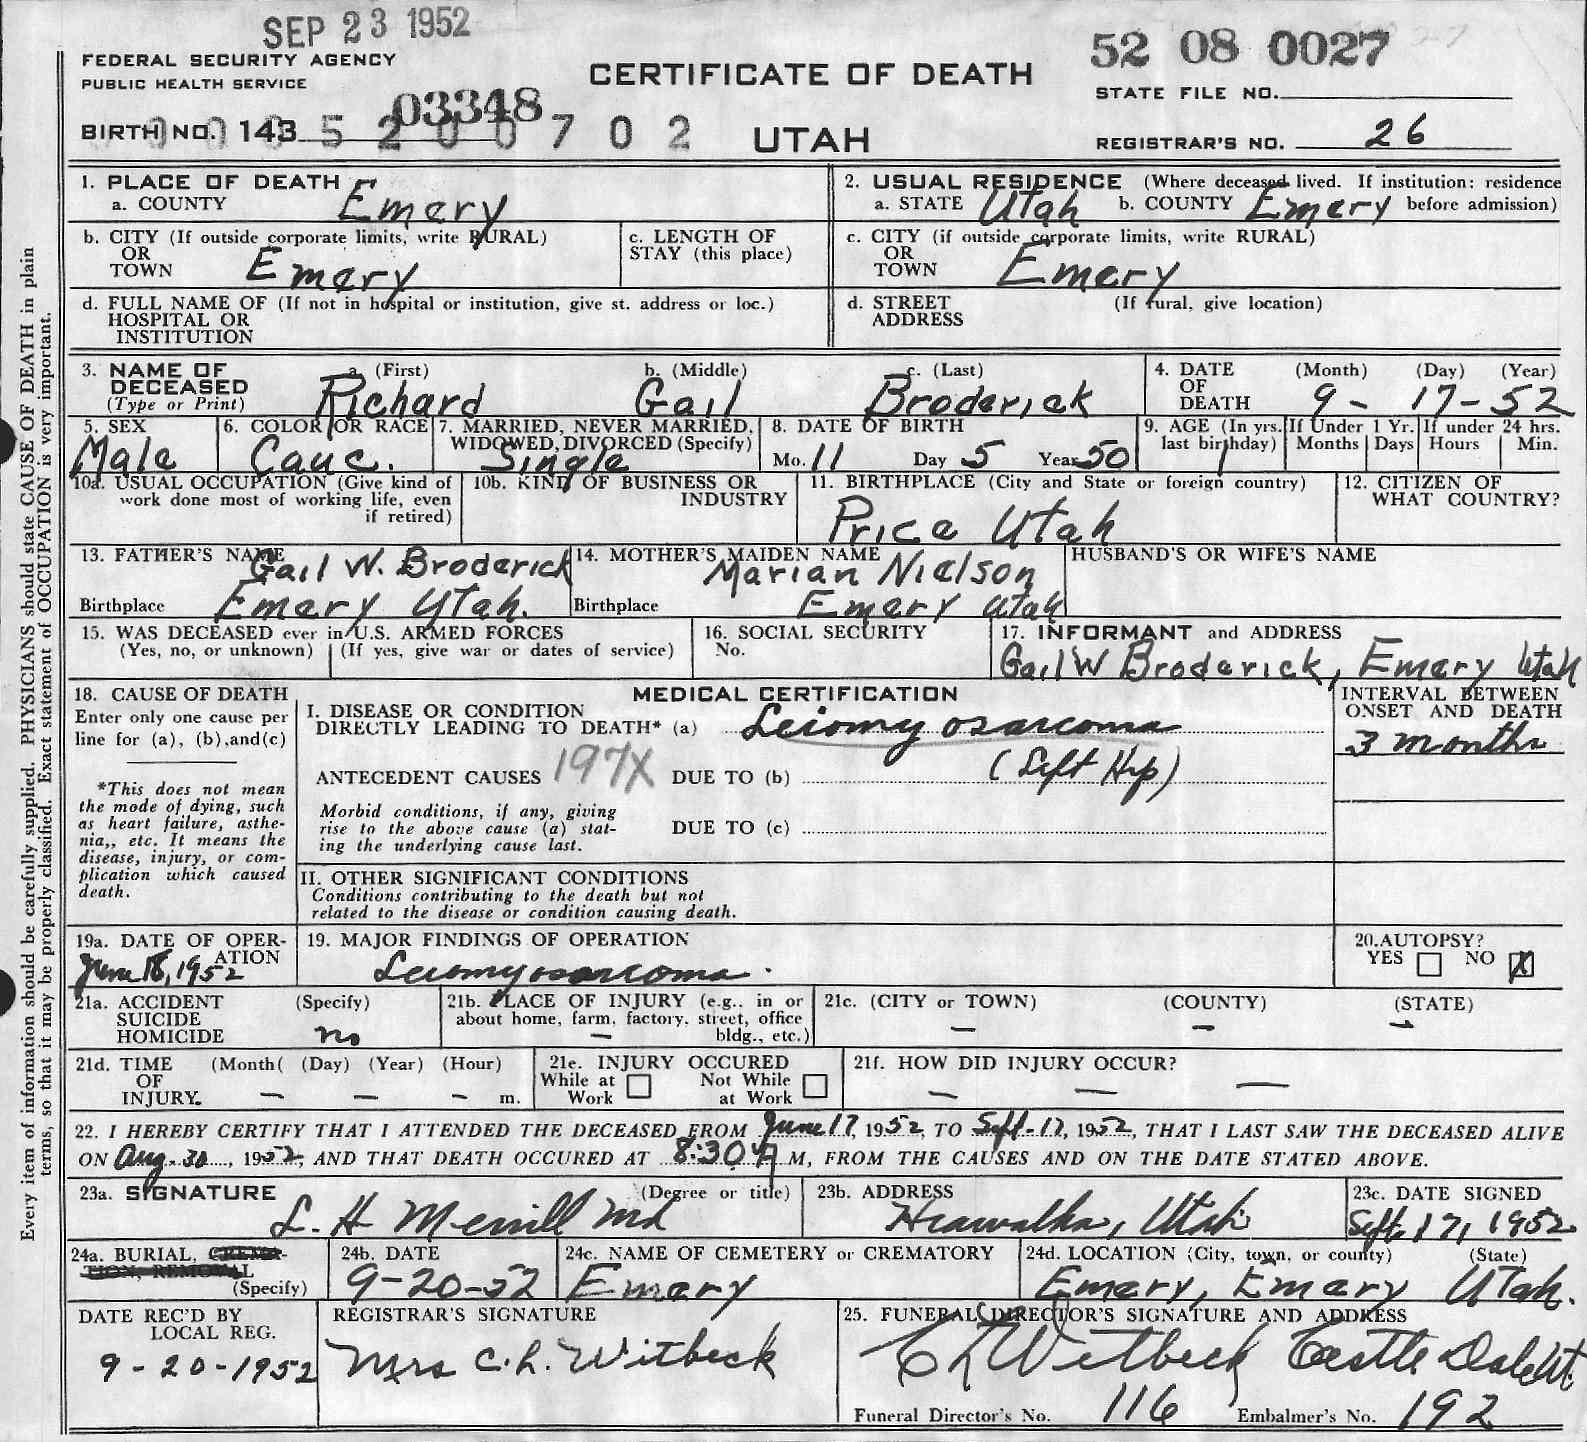 SEP 23 1952
FEDERAL SECURITY AGENCY
PUBLIC HEALTH SERVICE
CERTIFICATE OF DEATH
UTAH
52 08 0027
STATE FILE NO.
03348
BIRTH NO. 143
5 2 0 0 7 0 2
REGISTRAR'S NO. 26
1. PLACE OF DEATH
a. COUNTY Emery
2. USUAL RESIDENCE (Where deceased lived. If institution: residence before admission)
a. STATE Utah b. COUNTY Emery
b. CITY (If outside corporate limits, write RURAL) OR TOWN Emery
c. LENGTH OF STAY (this place)
c. CITY (if outside corporate limits, write RURAL) OR TOWN Emery
d. FULL NAME OF (If not in hospital or institution, give st. address or loc.) HOSPITAL OR INSTITUTION
d. STREET ADDRESS (If rural, give location)
3. NAME OF DECEASED (Type or Print)
a. (First) Richard
b. (Middle) Gail
c. (Last) Broderick
4. DATE OF DEATH (Month) (Day) (Year)
9 - 17 - 52
5. SEX Male
6. COLOR OR RACE Cauc.
7. MARRIED, NEVER MARRIED, WIDOWED, DIVORCED (Specify) Single
8. DATE OF BIRTH
Mo. 11 Day 5 Year 50
9. AGE (In yrs. last birthday) 1
If Under 1 Yr. Months Days
If under 24 hrs. Hours Min.
10a. USUAL OCCUPATION (Give kind of work done most of working life, even if retired)
10b. KIND OF BUSINESS OR INDUSTRY
11. BIRTHPLACE (City and State or foreign country)
Price Utah
12. CITIZEN OF WHAT COUNTRY?
13. FATHER'S NAME Gail W. Broderick
Birthplace Emery Utah.
14. MOTHER'S MAIDEN NAME Marian Nielson
Birthplace Emery Utah
HUSBAND'S OR WIFE'S NAME
15. WAS DECEASED ever in U.S. ARMED FORCES
(Yes, no, or unknown) (If yes, give war or dates of service)
16. SOCIAL SECURITY No.
17. INFORMANT and ADDRESS
Gail W Broderick, Emery Utah
18. CAUSE OF DEATH
Enter only one cause per line for (a), (b), and (c)
*This does not mean the mode of dying, such as heart failure, asthenia,, etc. It means the disease, injury, or complication which caused death.
MEDICAL CERTIFICATION
I. DISEASE OR CONDITION DIRECTLY LEADING TO DEATH* (a) Leiomyosarcoma
ANTECEDENT CAUSES 197X DUE TO (b) (Left Hip)
Morbid conditions, if any, giving rise to the above cause (a) stating the underlying cause last.
DUE TO (c)
INTERVAL BETWEEN ONSET AND DEATH
3 months
II. OTHER SIGNIFICANT CONDITIONS
Conditions contributing to the death but not related to the disease or condition causing death.
19a. DATE OF OPERATION June 18, 1952
19. MAJOR FINDINGS OF OPERATION
Leiomyosarcoma.
20. AUTOPSY?
YES NO X
21a. ACCIDENT SUICIDE HOMICIDE (Specify) no
21b. PLACE OF INJURY (e.g., in or about home, farm, factory, street, office bldg., etc.) —
21c. (CITY or TOWN) — (COUNTY) — (STATE) —
21d. TIME OF INJURY. (Month( (Day) (Year) (Hour) — — — m.
21e. INJURY OCCURED
While at Work Not While at Work
21f. HOW DID INJURY OCCUR? — — —
22. I HEREBY CERTIFY THAT I ATTENDED THE DECEASED FROM June 17, 1952, TO Sept. 17, 1952, THAT I LAST SAW THE DECEASED ALIVE
ON Aug. 30, 1952, AND THAT DEATH OCCURED AT 8:30 A M, FROM THE CAUSES AND ON THE DATE STATED ABOVE.
23a. SIGNATURE (Degree or title)
L. H Merrill MD
23b. ADDRESS
Hiawatha, Utah
23c. DATE SIGNED
Sept. 17, 1952
24a. BURIAL, CREMATION, REMOVAL (Specify)
24b. DATE 9-20-52
24c. NAME OF CEMETERY or CREMATORY Emery
24d. LOCATION (City, town, or county) (State)
Emery, Emery Utah.
DATE REC'D BY LOCAL REG.
9-20-1952
REGISTRAR'S SIGNATURE
Mrs C. L. Witbeck
25. FUNERAL DIRECTOR'S SIGNATURE AND ADDRESS
C L Witbeck Castle Dale Ut
Funeral Director's No. 116 Embalmer's No. 192
Every item of information should be carefully supplied. PHYSICIANS should state CAUSE OF DEATH in plain
terms, so that it may be properly classified. Exact statement of OCCUPATION is very important.